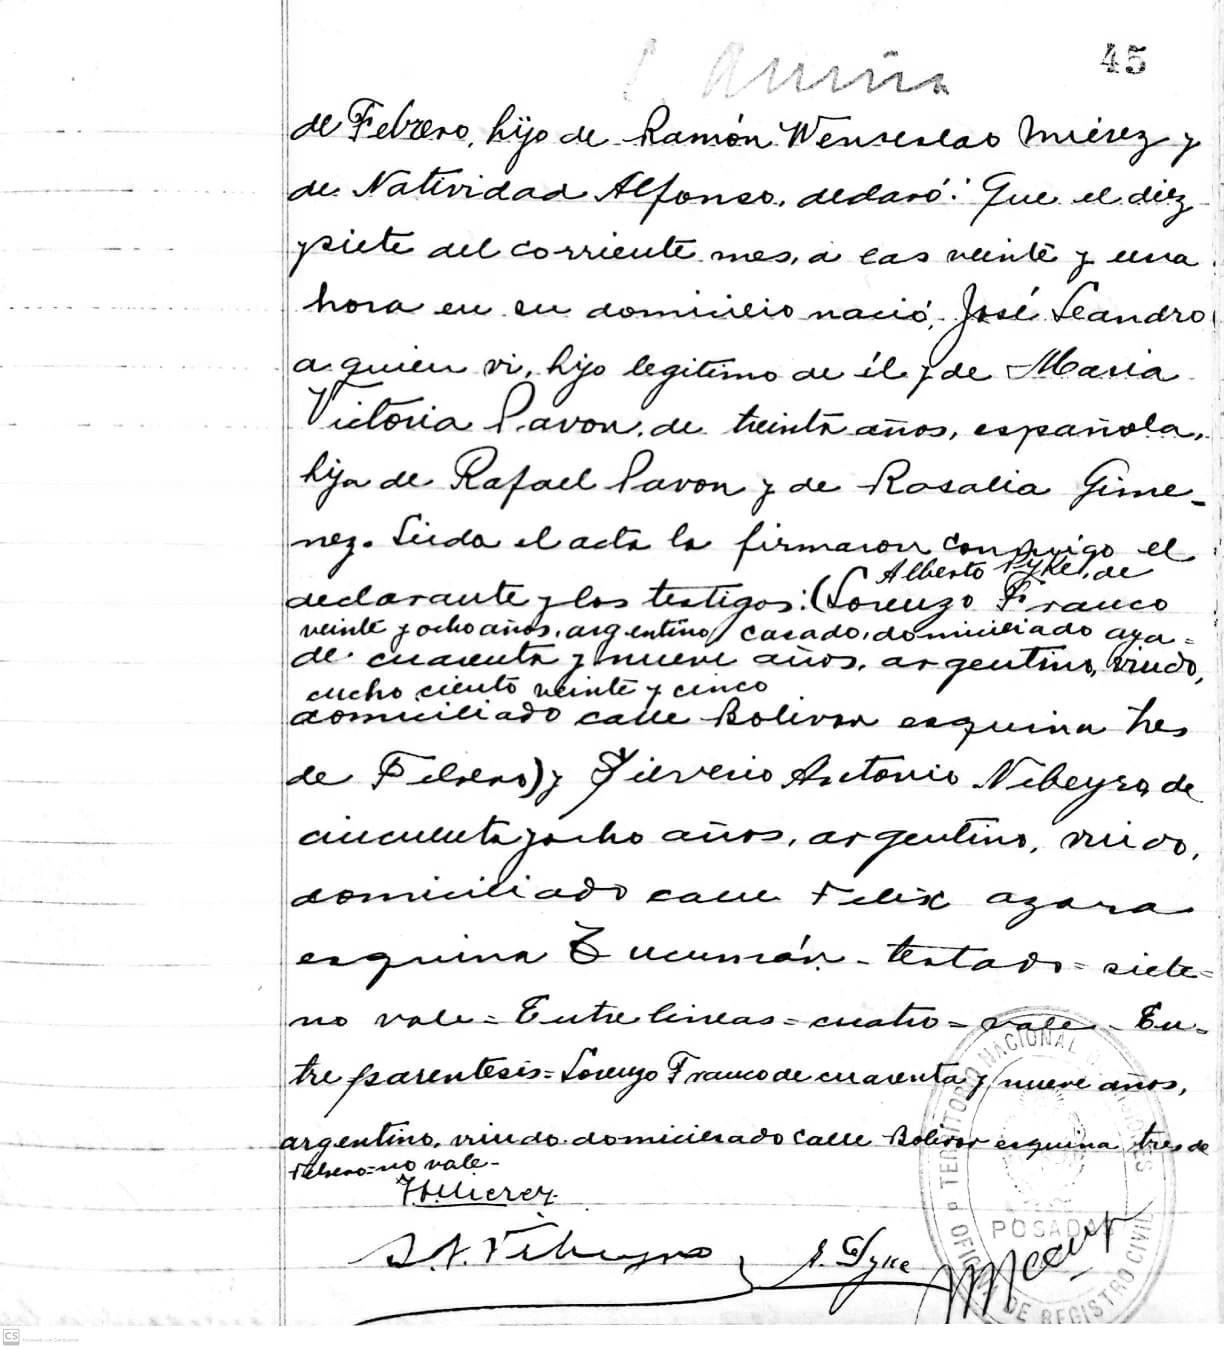 45
de Febrero, hijo de Ramón Wenseslao Mierez y
de Natividad Alfonso, declaró: Que el diez
y siete del corriente mes, a las veinte y una
hora en su domicilio nació, José Leandro
a quien vi, hijo legitimo de él y de Maria
Victoria Pavon, de treinta años, española,
hija de Rafael Pavon y de Rosalia Gime-
nez. Leida el acta la firmaron conmigo el
Alberto Dyke, de
declarante y los testigos: (Lorenzo Franco
veinte y ocho años, argentino, casado, domiciliado aya=
de cuarenta y nueve años, argentino, viudo,
cucho ciento veinte y cinco
domiciliado calle Bolivar esquina tres
de Febrero) y Silverio Antonio Nibeyro, de
cincuenta y ocho años, argentino, viudo,
domiciliado calle Felix azara
esquina Tucumán - testado = siete =
no vale = Entre lineas = cuatro = vale - En-
tre parentesis = Lorenzo Franco de cuarenta y nueve años,
argentino, viudo domiciliado calle Bolivar esquina tres de
Febrero = no vale -
S. A. Nibeyro
A. Dyke
TERRITORIO NACIONAL DE MISIONES
POSADAS
OFICINA DE REGISTRO CIVIL
CS